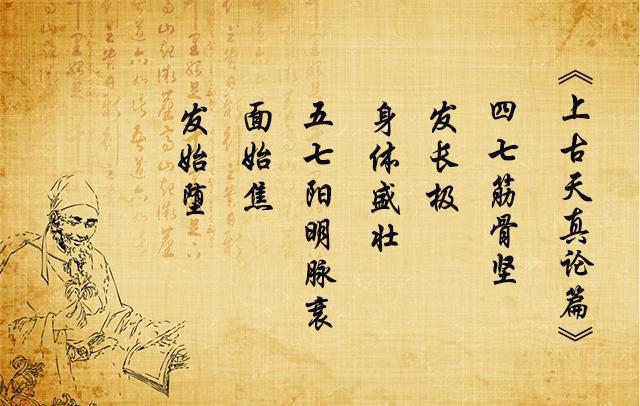 《上古天真论篇》
四七筋骨坚
发长极
身体盛壮
五七阳明脉衰
面始焦
发始堕